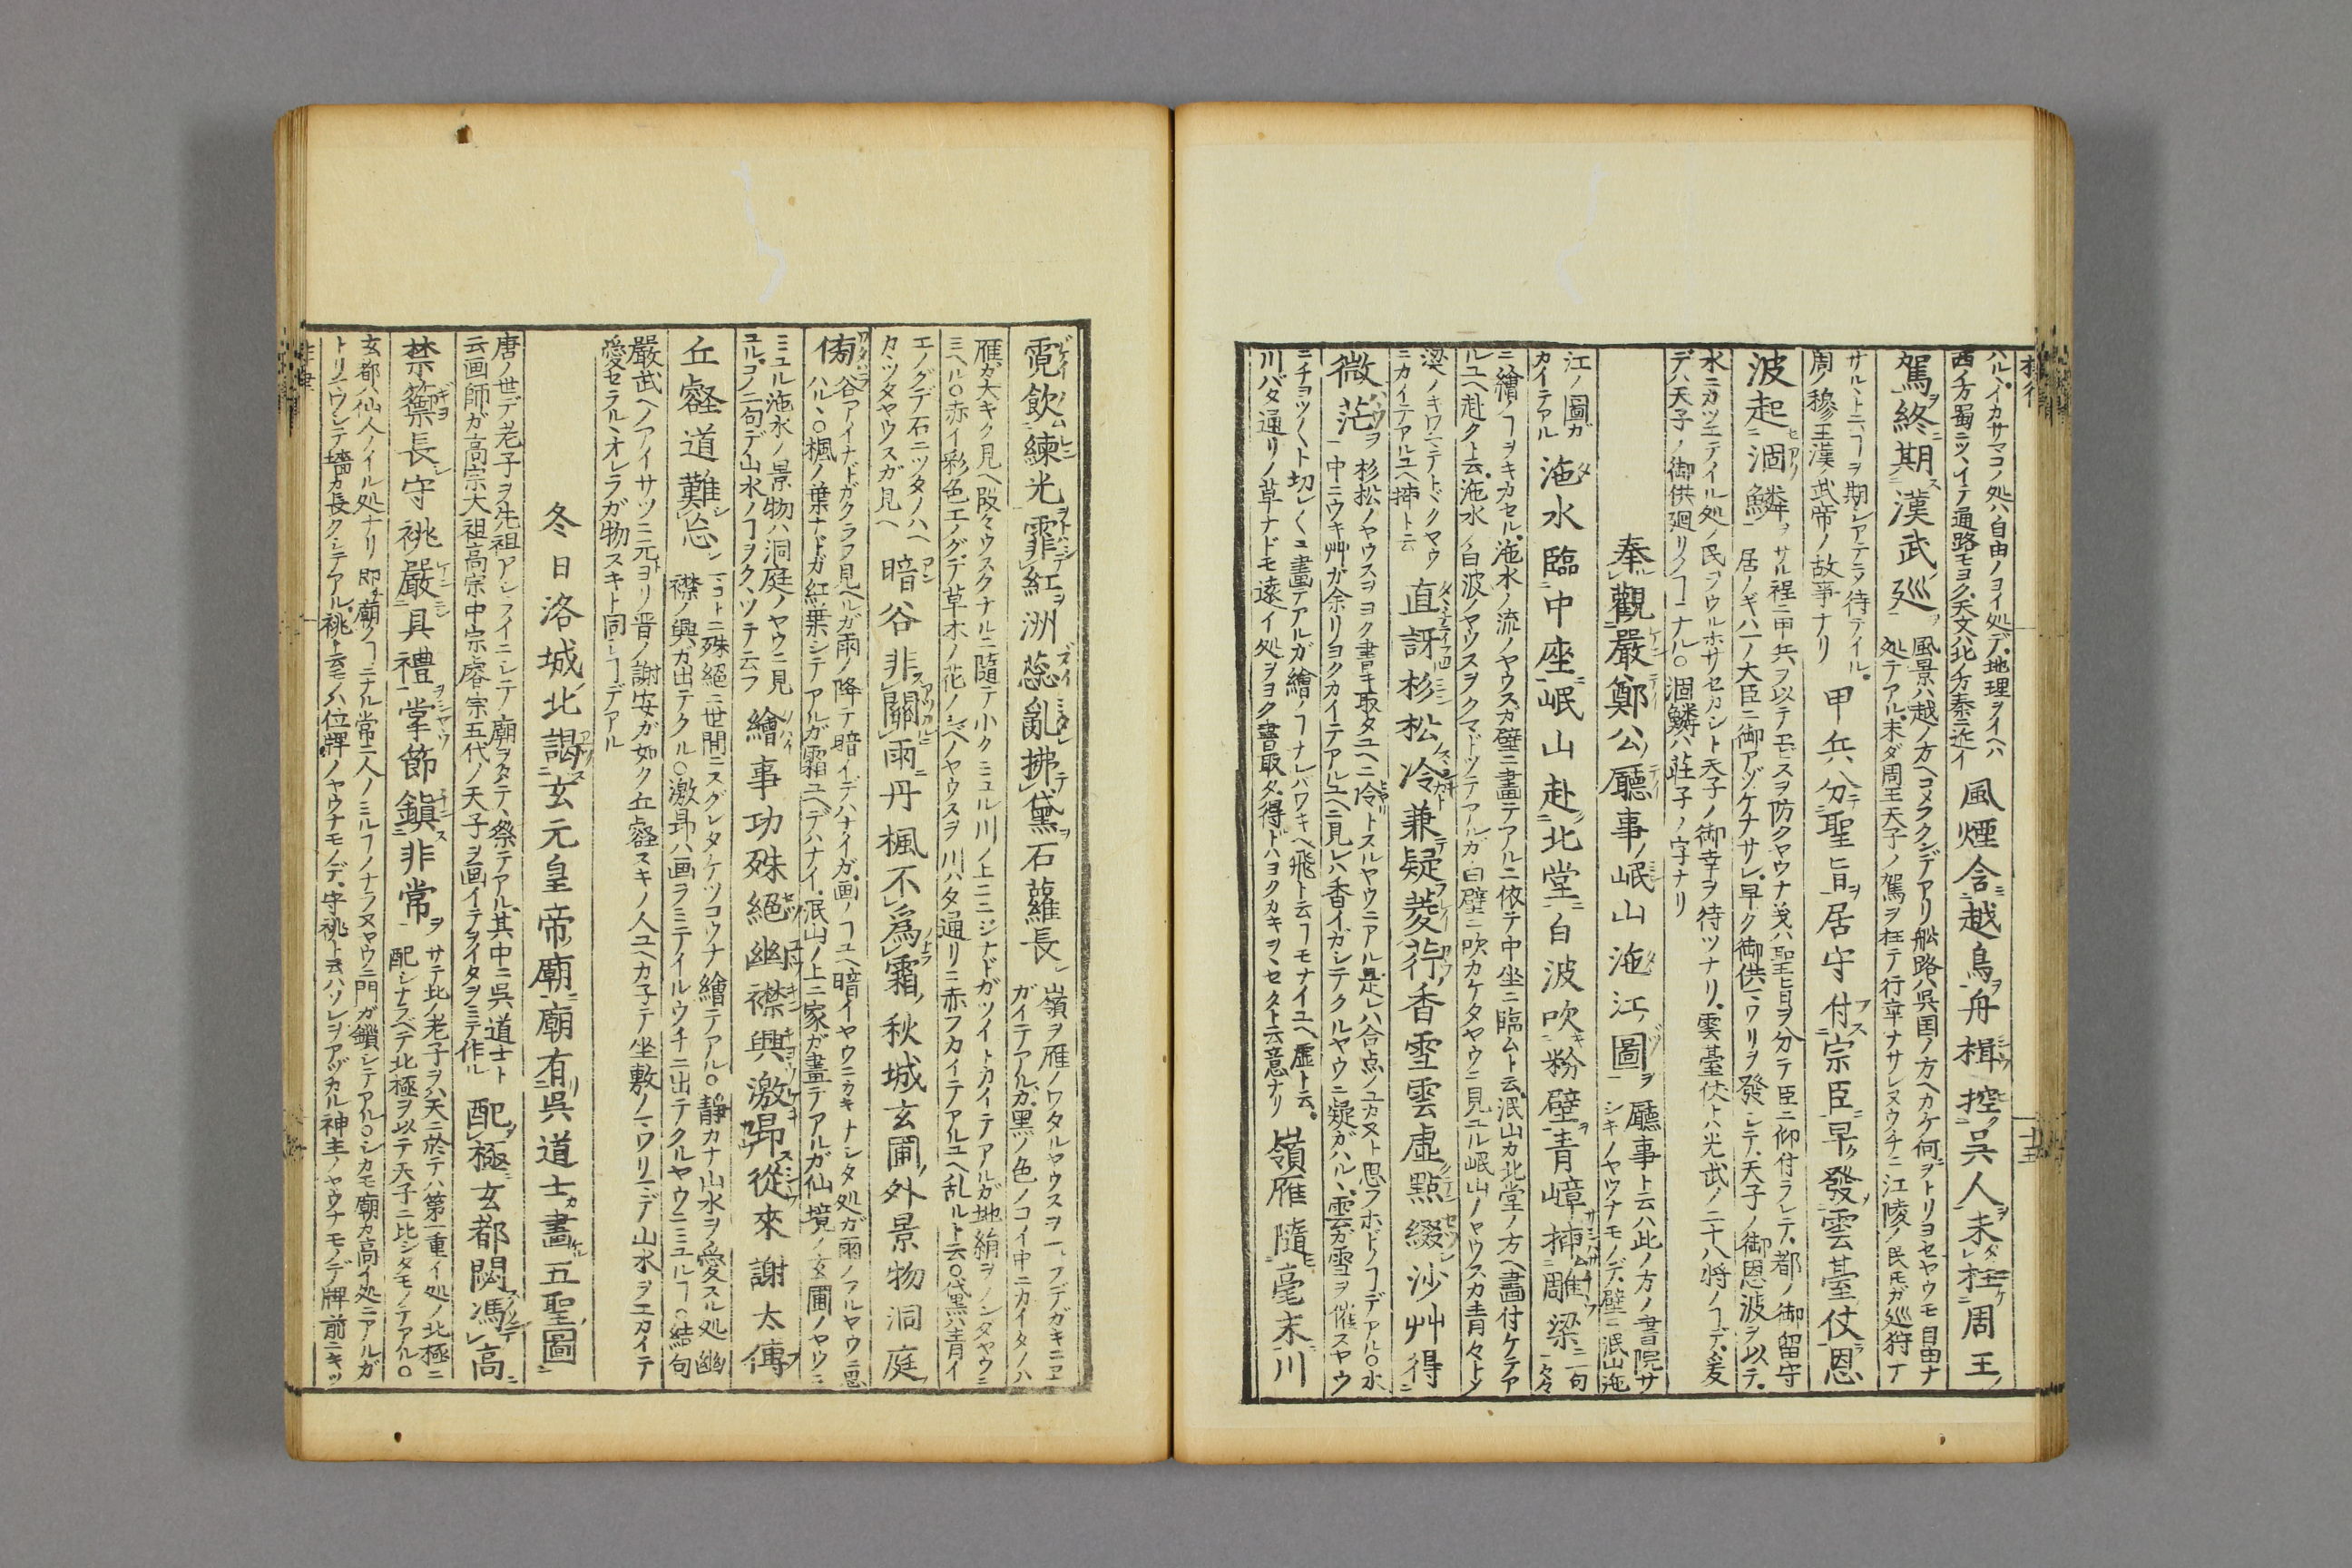 ハルヽイカサマコノ処ハ自由ノヨイ処デ地理ヲイヘハ
西ノ方蜀ニツヽイテ通路モヨク天文ハ北ノ方秦ニ近イ
風煙含越鳥舟楫控吳人未枉周王
駕終期漢武巡
風景ハ越ノ方ヘコメラクンデアリ舩路ハ呉国ノ方ヘカケ何ヲトリヨセヤウモ自由ナ
処テアル末ダ周王天子ノ駕ヲ枉テ行幸ナサレヌウチニ江陵ノ民ガ巡狩
サルヽトニヿヲ期シアテヽ待テイル
周ノ穆王漢ノ武帝ノ故事ナリ
甲兵分聖旨居守付宗臣早發雲臺仗恩
波起涸鱗
サル程ニ甲兵ヲ以テモスヲ防クヤウナ㕝ハ聖旨ヲ分テ臣ニ仰付ラレテ都ノ御留守
居ノギハ一ノ大臣ニ御アヅケナサレ早ク御供マワリヲ發シテ天子ノ御恩波ヲ以テ
水ニカツエテイル処ノ民ヲウルホサセカシト天子ノ御幸ヲ待ツナリ雲臺仗ト八光武ノ二十八将ノヿデ爰
デハ天子ノ御供廻リノヿニナル〇涸鱗ハ荘子ノ字ナリ
奉觀嚴鄭公廳事岷山沲江圖
廳事ト云ハ此ノ方ノ書院サ
シキノヤウナモノデ壁ニ泯山沲
江ノ圖ガ
カイテアル
沲水臨中座岷山赴北堂白波吹粉壁青嶂挿雕梁
二句
々
ニ繪ノヿヲキカセル沲水ノ流ノヤウスガ壁ニ畫テアルニ依テ中坐ニ臨ムト云泯山カ北堂ノ方ヘ畫付ケテア
ルユヘ赴クト云沲水ノ白波ノヤウスヲクマドツテアルガ白壁ニ吹カケタヤウニ見ユル岷山ノヤウスカ青々トメ
梁ノキワマテトヾクヤウ
ニカイテアルユヘ挿ト云
直訝杉松冷兼疑菱荇香雪雲虛點綴沙艸得
微茫
杉松ノヤウスヲヨク書キ取タユヘニ冷トスルヤウニアル是レハ合点ノユカヌト思フホドノヿデアル〇水
中ニウキ艸ガ余リヨクカイテアルユヘニ見レハ香イガシテクルヤウニ疑ガハルヽ雲ガ雪ヲ催スヤウ
ニチヨツ〱ト切レ〱ニ畫テアルガ繪ノヿナレバワキヘ飛ト云ヿモナイユヘ虛ト云
川バタ通リノ草ナドモ遠イ処ヲヨク書取タ得ドハヨクカキヲヽセタト云意ナリ
嶺雁隨毫末川
霓飲練光霏紅洲蕊亂拂黛石蘿長
嶺ヲ雁ノワタルヤウスヲ一フデガキニヱ
ガイテアルガ黒ノ色ノコイ中ニカイタノハ
雁ガ大キク見ヘ段々ウスクナルニ隨テ小クミユル川ノ上ニニジナドガツイトカイテアルガ地絹ヲノンダヤウニ
ミヘル〇赤イ彩色エノグデ草木ノ花ノシベノヤウスヲ川バタ通リニ赤フカイテアルユヘ乱ルト云〇黛黒ハ青イ
エノグデ石ニツタノハヘ
カヽツタヤウスガ見ヘ
暗谷非關雨丹楓不爲霜秋城玄圃外景物洞庭
傍
谷アイナドガクラフ見ヘルガ雨ノ降テ暗イデハナイガ画ノヿユヘ暗イヤウニカキナシタ処ガ雨ノフルヤウニ思
ハルヽ〇楓ノ葉ナドガ紅葉シテアルガ霜ユヘデハナイ泯山ノ上ニ家ガ畫テアルガ仙境ノ玄圃ノヤウニ
ミユル沲水ノ景物ハ洞庭ノヤウニ見
ユルコノ二句デ山水ノヿヲクヽツテ云フ
繪事功殊絕幽襟興激昻從來謝太傅
丘壑道難忘
マコトニ殊絕ニ世間ニスグレタケツコウナ繪テアル〇静カナ山水ヲ愛スル処幽
襟ノ興ガ出テクル〇激昻ハ画ラミテイルウチニ出テクルヤウニミユルヿ〇結句
嚴武ヘノアイサツニ元ヨリ晋ノ謝安ガ如ク丘壑スキノ人ユヘカ子テ坐敷ノマワリマデ山水ヲエカイテ
愛セラルヽオレラガ物スキト同シヿデアル
冬日洛城北謁玄元皇帝廟廟有吳道士畫五聖圖
唐ノ世デ老子ヲ先祖アシライニシテ廟ヲタテヽ祭テアル其中ニ呉道士ト
云画師ガ高宗大祖高宗中宗睿宗五代ノ天子ヲ画イテヲイタヲミテ作ル
配極玄都閟馮高
禁籞長守祧嚴具禮掌節鎭非常
サテ此ノ老子ヲハ天ニ於テハ第一重イ処ノ北極ニ
配シナラベテ北極ヲ以テ天子ニ比シタモノテアル〇
玄都ハ仙人ノイル処ナリ即廟ノヿニナル常ニ人ノミルヿノナラヌヤウニ門ガ鎖シテアル〇シカモ廟カ高イ処ニアルガ
トリマワシテ墻カ長クシテアル祧ト云モノハ位牌ノヤウナモノデ守祧ト云ハソレヲアヅカル神主ノヤウナモノデ牌前ニキツ